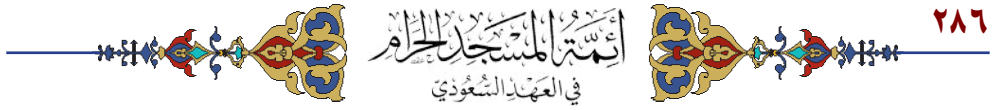 ٢٨٦
أَئِمَّةُ المَسْجِدِ الحَرَامِ
فِي العَهْدِ السُّعُودِيّ